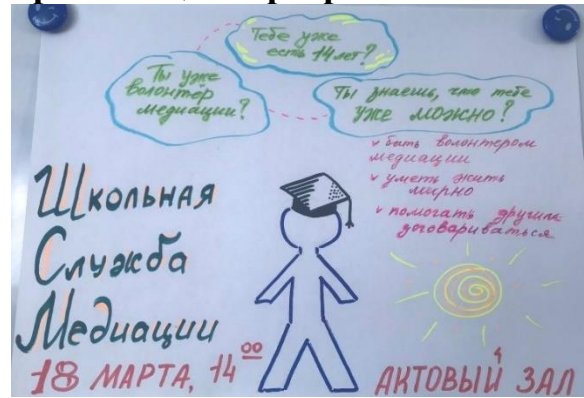 Тебе уже
есть 14 лет?
Ты уже
волонтёр
медиации?
Ты знаешь, что тебе
уже можно?
v быть волонтером
медиации
v уметь жить
мирно
v помогать другим
договариваться
Школьная
Служба
Медиации
18 МАРТА, 14 00
АКТОВЫЙ ЗАЛ